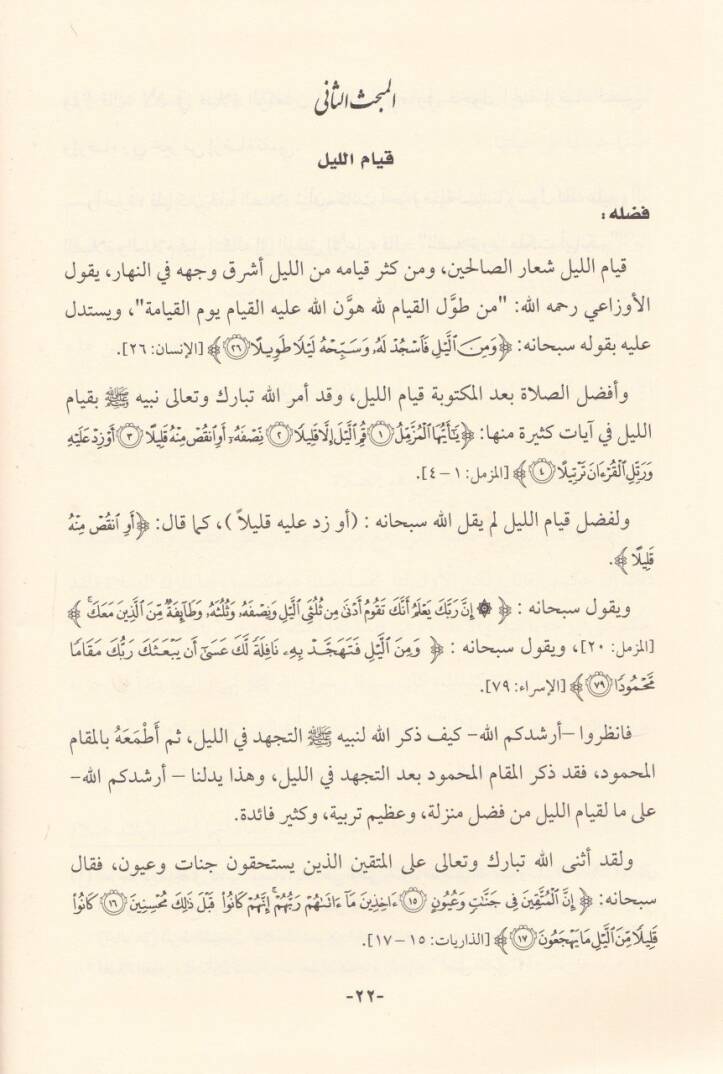 المبحث الثاني
قيام الليل
فضله :
قيام الليل شعار الصالحين، ومن كثر قيامه من الليل أشرق وجهه في النهار، يقول
الأوزاعي رحمه الله: "من طوَّل القيام لله هوَّن الله عليه القيام يوم القيامة"، ويستدل
عليه بقوله سبحانه: ﴿وَمِنَ ٱلَّيۡلِ فَٱسۡجُدۡ لَهُۥ وَسَبِّحۡهُ لَيۡلٗا طَوِيلًا ٢٦﴾ [الإنسان: ٢٦].
وأفضل الصلاة بعد المكتوبة قيام الليل، وقد أمر الله تبارك وتعالى نبيه ﷺ بقيام
الليل في آيات كثيرة منها: ﴿يَٰٓأَيُّهَا ٱلۡمُزَّمِّلُ ١ قُمِ ٱلَّيۡلَ إِلَّا قَلِيلٗا ٢ نِّصۡفَهُۥٓ أَوِ ٱنقُصۡ مِنۡهُ قَلِيلًا ٣ أَوۡ زِدۡ عَلَيۡهِ
وَرَتِّلِ ٱلۡقُرۡءَانَ تَرۡتِيلًا ٤﴾ [المزمل: ١ – ٤].
ولفضل قيام الليل لم يقل الله سبحانه : (أو زد عليه قليلاً )، كما قال: ﴿أَوِ ٱنقُصۡ مِنۡهُ
قَلِيلًا ﴾.
ويقول سبحانه : ﴿ ۞ إِنَّ رَبَّكَ يَعۡلَمُ أَنَّكَ تَقُومُ أَدۡنَىٰ مِن ثُلُثَيِ ٱلَّيۡلِ وَنِصۡفَهُۥ وَثُلُثَهُۥ وَطَآئِفَةٞ مِّنَ ٱلَّذِينَ مَعَكَۚ ﴾
[المزمل: ٢٠]، ويقول سبحانه : ﴿ وَمِنَ ٱلَّيۡلِ فَتَهَجَّدۡ بِهِۦ نَافِلَةٗ لَّكَ عَسَىٰٓ أَن يَبۡعَثَكَ رَبُّكَ مَقَامٗا
مَّحۡمُودٗا ٧٩﴾ [الإسراء: ٧٩].
فانظروا –أرشدكم الله– كيف ذكر الله لنبيه ﷺ التجهد في الليل، ثم أَطْمَعَهُ بالمقام
المحمود، فقد ذكر المقام المحمود بعد التجهد في الليل، وهذا يدلنا – أرشدكم الله–
على ما لقيام الليل من فضل منزلة، وعظيم تربية، وكثير فائدة.
ولقد أثنى الله تبارك وتعالى على المتقين الذين يستحقون جنات وعيون، فقال
سبحانه: ﴿ إِنَّ ٱلۡمُتَّقِينَ فِي جَنَّٰتٖ وَعُيُونٍ ١٥ ءَاخِذِينَ مَآ ءَاتَىٰهُمۡ رَبُّهُمۡۚ إِنَّهُمۡ كَانُواْ قَبۡلَ ذَٰلِكَ مُحۡسِنِينَ ١٦ كَانُواْ
قَلِيلٗا مِّنَ ٱلَّيۡلِ مَا يَهۡجَعُونَ ١٧﴾ [الذاريات: ١٥ – ١٧].
-٢٢-